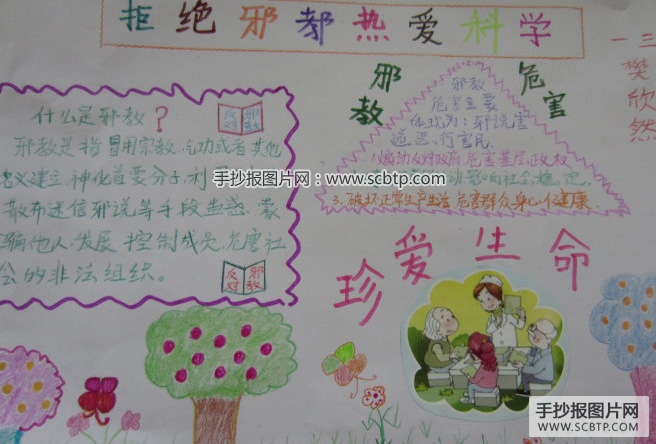 拒绝邪教热爱科学
一三
樊欣然
什么是邪教？
反对邪教
邪教是指冒用宗教、气功或者其他
名义建立、神化首要分子、利用
散布迷信邪说等手段蛊惑、蒙
骗他人、发展、控制成员、危害社
会的非法组织。
反对邪教
邪教
危害
邪教
危害主要
表现为：邪说害
道惑、行害民
1、煽动反对政府危害基层政权
动影响社会稳定
3、破坏正常生产生活危害群众身心健康
手抄报图片网：www.scbtp.com
珍爱生命
手抄报图片网
WWW.SCBTP.COM